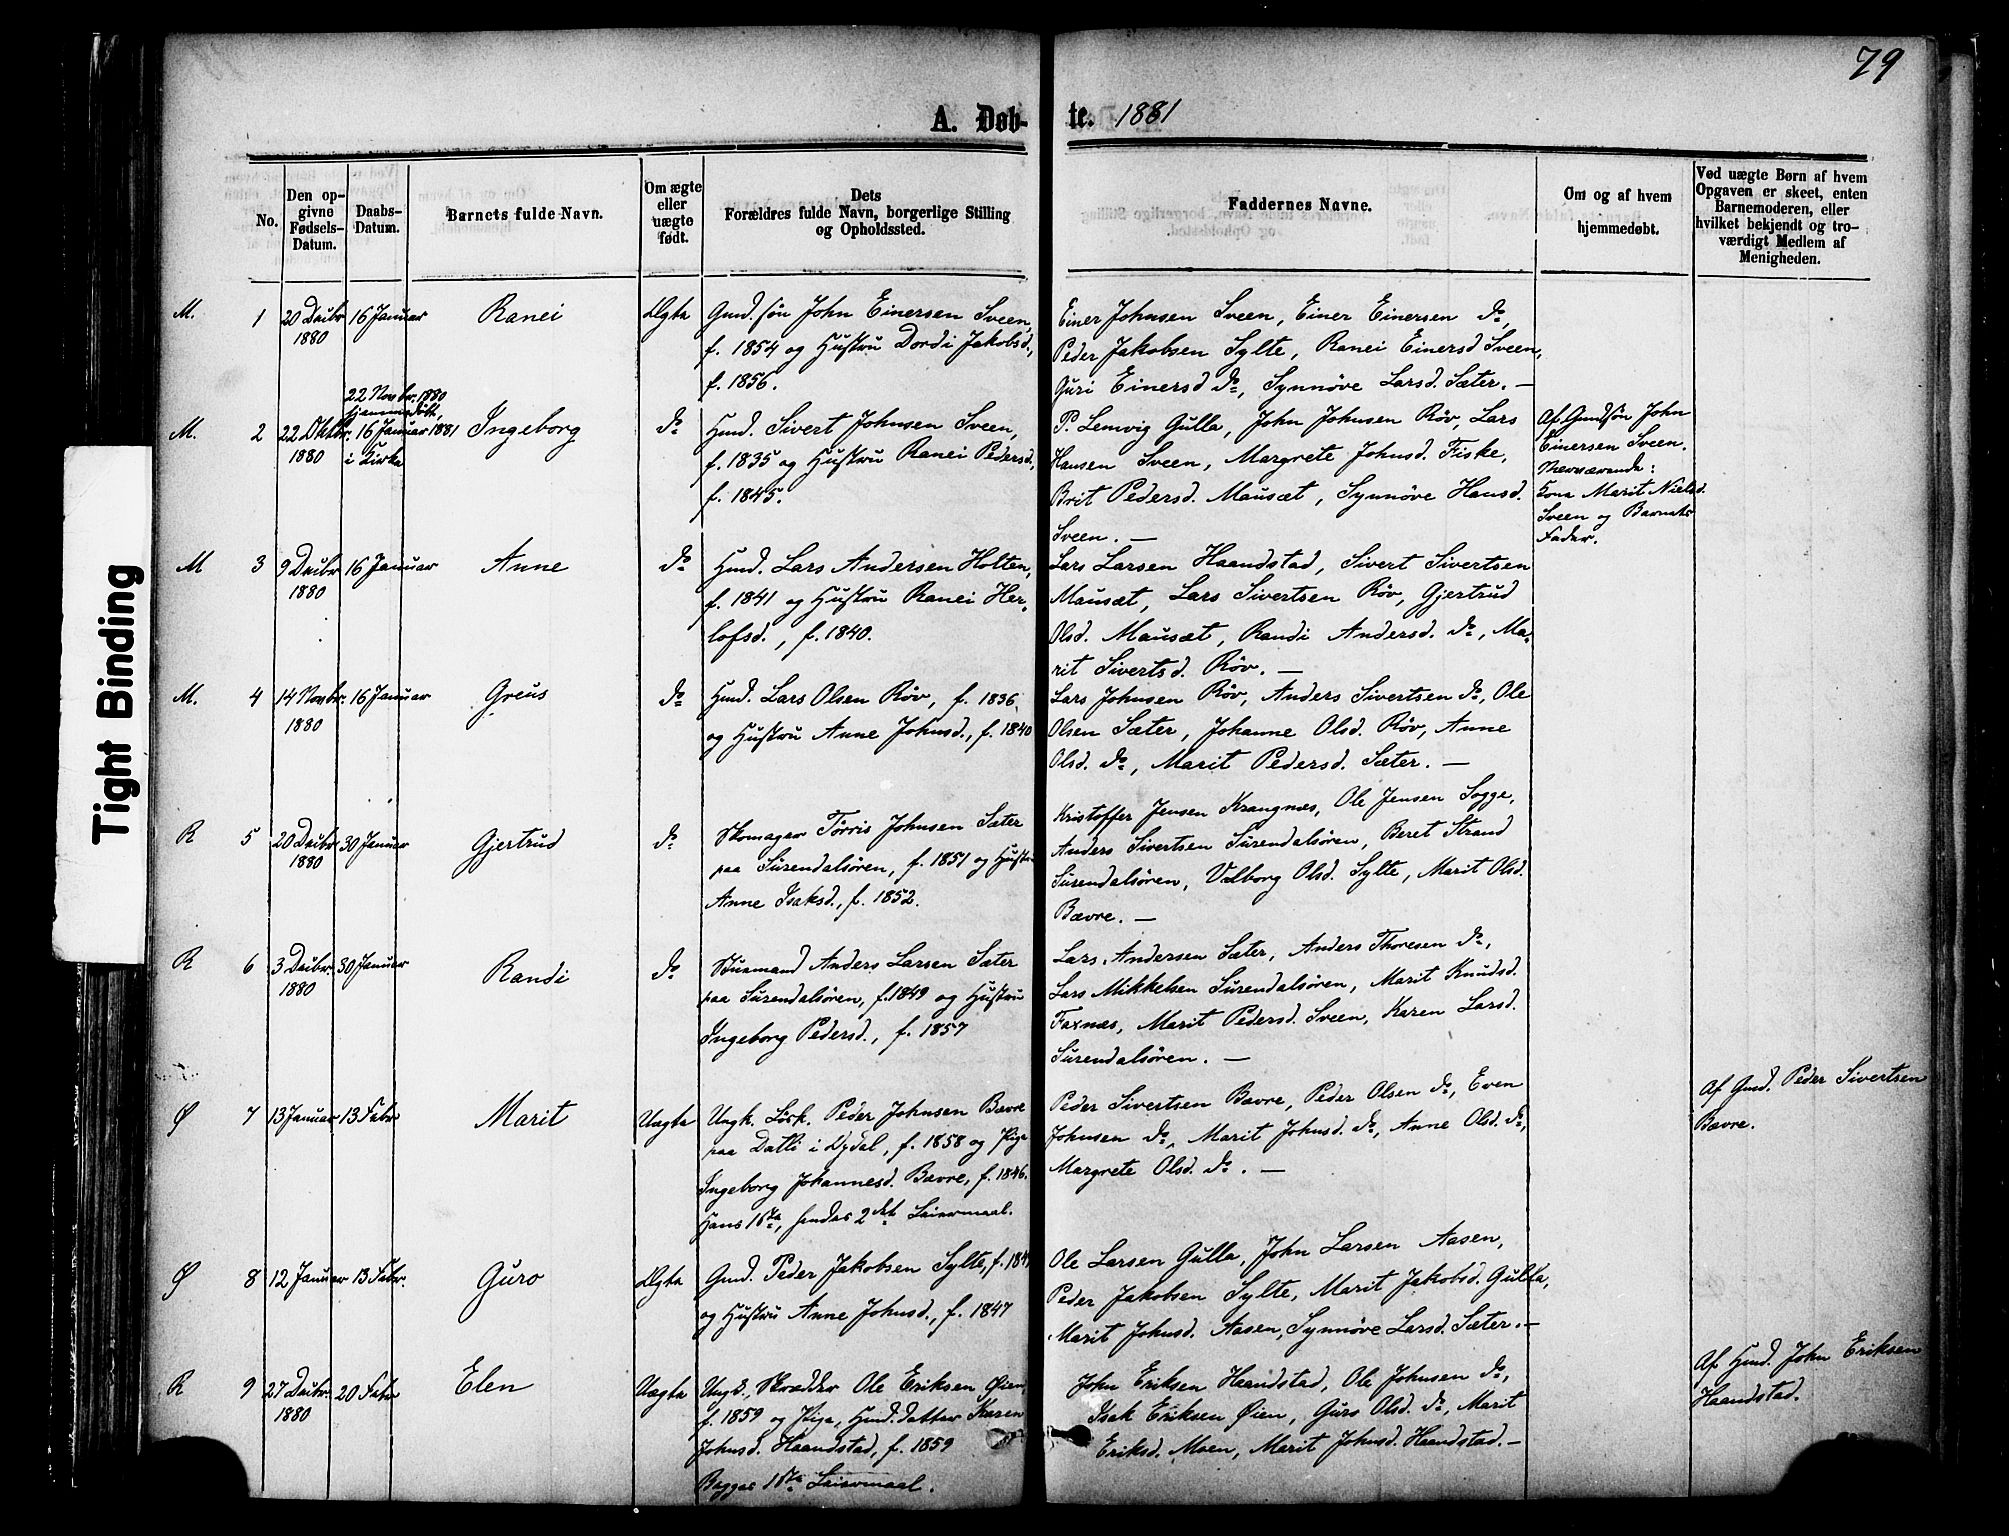 79
A. Døbte. 1881
No.
Den opgivne Fødsels-Datum.
Daabs-Datum.
Barnets fulde Navn.
Om ægte eller uægte født.
Dets Forældres fulde Navn, borgerlige Stilling og Opholdssted.
Faddernes Navne.
Om og af hvem hjemmedøbt.
Ved uægte Børn af hvem Opgaven er skeet, enten Barnemoderen, eller hvilket bekjendt og troværdigt Medlem af Menigheden.
Tight Binding
M. 1 20 Decbr 1880 16 Januar Ranei Ægte
Gmd. søn John Einersen Sveen,
f. 1854 og Hustru Dordi Jakobsd.,
f. 1856.
Einer Johnsen Sveen, Einer Einersen do,
Peder Jakobsen Sylte, Ranei Einersd Sveen,
Guri Einersd do, Synnøve Larsd. Sæter. —
M. 2 22 Oktbr. 1880
22 Novbr. 1880
hjemmedøbt,
16 Januar 1881
i Kirke
Ingeborg do
Gmd. Sivert Johnsen Sveen,
f. 1835 og Hustru Ranei Pedersd.,
f. 1845.
P. Lemvig Gulla, John Johnsen Røv, Lars
Hansen Sveen, Margrete Johnsd. Fiske,
Brit Pedersd. Mausæt, Synnøve Hansd.
Sveen. —
Af Gmdsøn John
Einersen Sveen.
Nærværende:
Kone Marit Nielsd.
Sveen og Barnets
Fader.
M 3 9 Decbr 1880 16 Januar Anne do
Gmd. Lars Andersen Holten,
f. 1841 og Hustru Ranei Her-
lofsd., f. 1840.
Lars Larsen Haandstad, Sivert Sivertsen
Mausæt, Lars Sivertsen Røv, Gjertrud
Olsd. Mausæt, Randi Andersd. do, Ma-
rit Sivertsd. Røv. —
M. 4 14 Novbr. 1880 16 Januar Greus do
Gmd. Lars Olsen Røv, f. 1836
og Hustru Anne Johnsd., f. 1840
Lars Johnsen Røv, Anders Sivertsen do, Ole
Olsen Sæter, Johanne Olsd. Røv, Anne
Olsd. do, Marit Pedersd. Sæter. —
R 5 20 Decbr 1880 30 Januar Gjertrud do
Skomager Tørris Johnsen Sæter
paa Surendalsøren, f. 1851 og Hustru
Anne Isaksd., f. 1852.
Kristoffer Jensen Krangnæs, Ole Jensen Sogge,
Anders Sivertsen Surendalsøren, Beret Strand
Surendalsøren, Valborg Olsd. Sylte, Marit Olsd.
Bævre. —
R 6 3 Decbr. 1880 30 Januar Randi do
Husmand Anders Larsen Sæter
paa Surendalsøren, f. 1849 og Hustru
Ingeborg Pedersd., f. 1857
Lars Andersen Sæter, Anders Thoresen do,
Lars Mikkelsen Surendalsøren, Marit Knudsd.
Faxnæs, Marit Pedersd. Sveen, Karen Larsd.
Surendalsøren. —
Ø 7 13 Januar 13 Febr Marit Uægte
Ungk. Peder Johnsen Bævre
paa Dalli i Dydal, f. 1858 og Pige
Ingeborg Johannesd. Bævre, f. 1846.
Hans 1ste, hendes 2det Leiermaal.
Peder Sivertsen Bævre, Peder Olsen do, Even
Johnsen do, Marit Johnsd. do, Anne Olsd. do,
Margrete Olsd. do. —
Af Gmd. Peder Sivertsen
Bævre.
Ø 8 12 Januar 13 Febr. Guro Ægte
Gmd. Peder Jakobsen Sylte, f.
og Hustru Anne Johnsd., f. 1847
Ole Larsen Gulla, John Larsen Aasen,
Peder Jakobsen Sylte, Marit Jakobsd. Gulla,
Marit Johnsd. Aasen, Synnøve Larsd. Sæter. —
R 9 27 Decbr. 1880 20 Febr Elen Uægte
Ungk., Skrædder Ole Eriksen Øien,
f. 1859 og Pige, Gmd. datter Karen
Johnsd. Haandstad, f. 1859
Begges 1ste Leiermaal.
John Eriksen Haandstad, Ole Johnsen do,
Isak Eriksen Øien, Guro Olsd. do, Marit
Eriksd. Moen, Marit Johnsd. Haandstad. —
Af Gmd. John Eriksen
Haandstad.